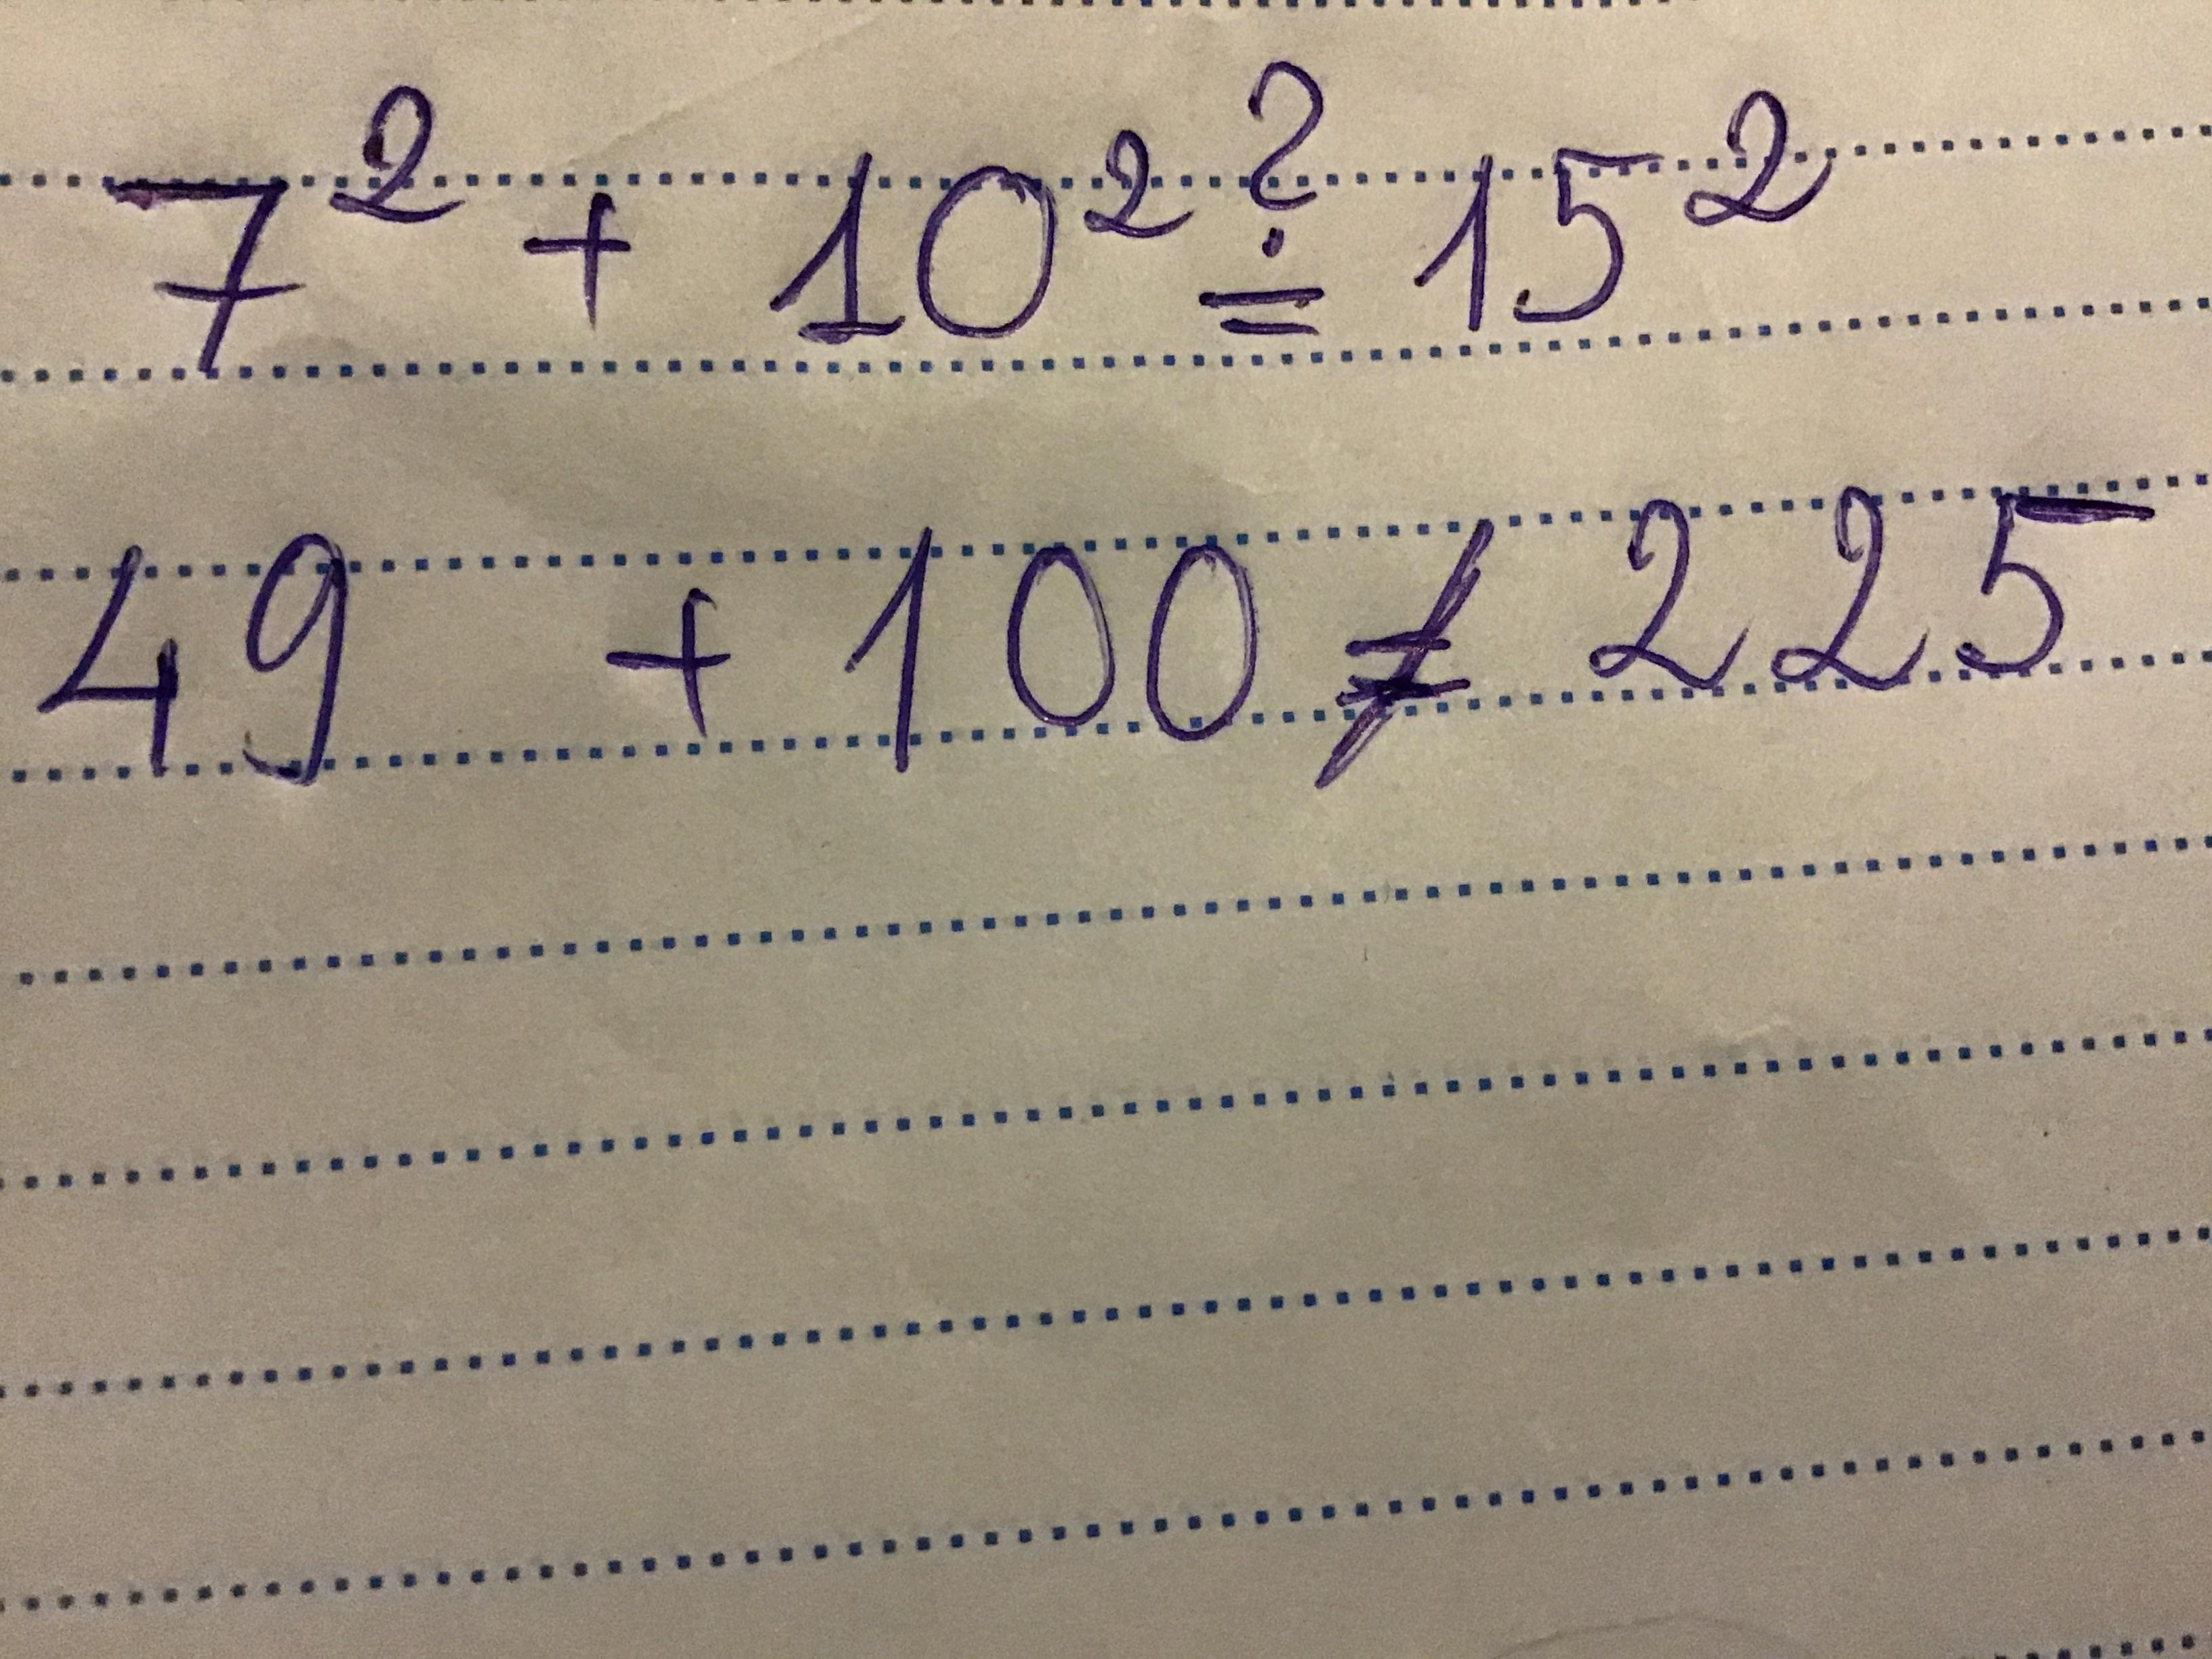 7² + 10² ≟ 15²
49 + 100 ≠ 225